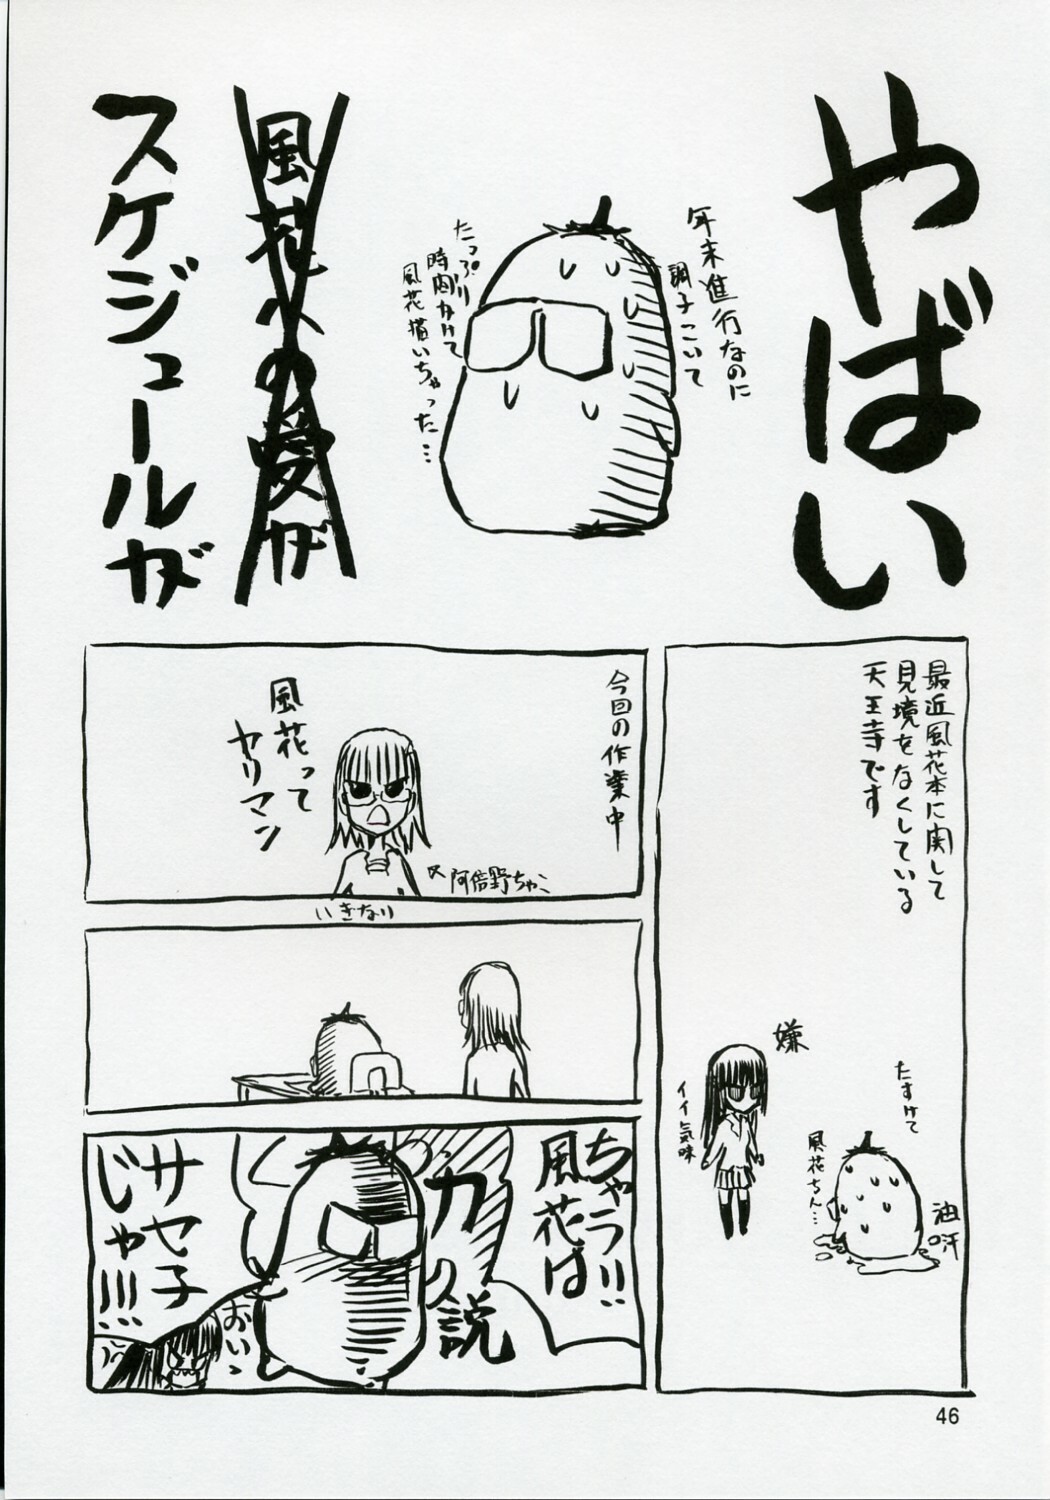 やばい
年末進行なのに
調子こいて
たっぷり
時間かけて
風花描いちゃった…
風花への愛が
スケジュールが
最近風花本に関して
見境をなくしている
天王寺です
嫌
イイ気味
たすけて
風花ちん…
油汗
今回の作業中
風花って
ヤリマン
阿倍野ちゃこ
いきなり
ちゃう!!
風花は
説
サセ子
じゃ!!!
おいっ
46